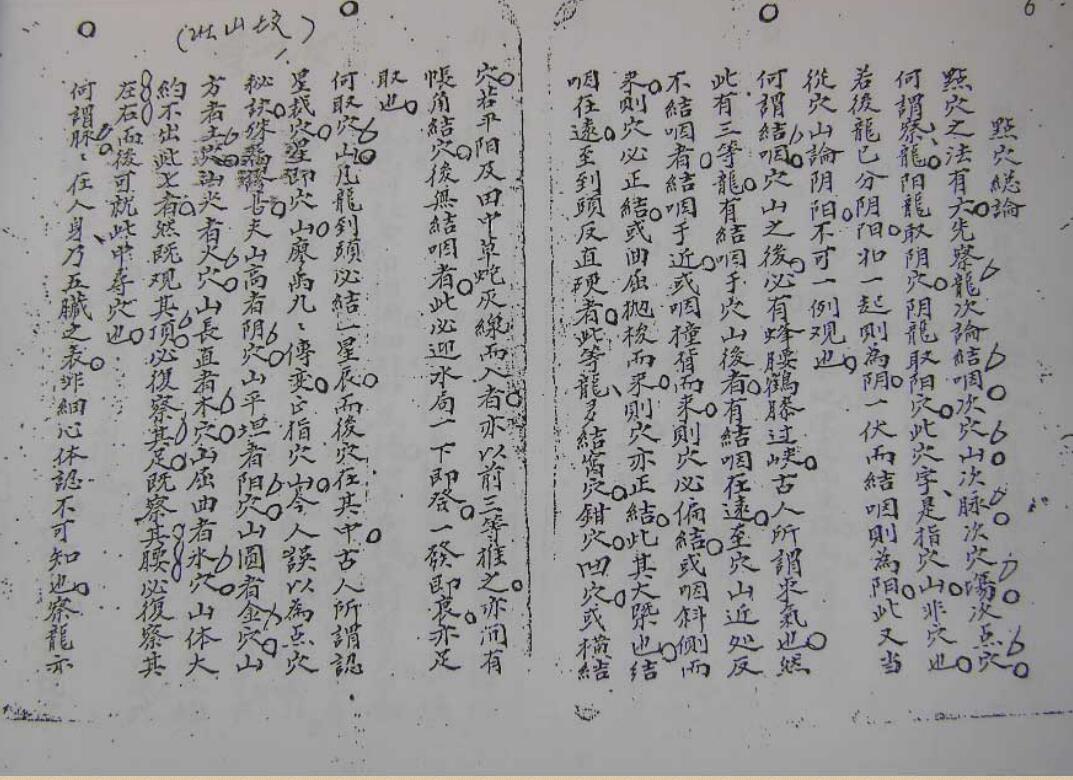 點穴總論
點穴之法有六先察龍次論結咽次穴山次脉次穴場次点穴
何謂察龍阳龍取阴穴阴龍取阳穴此穴字是指穴山非穴也
若後龍已分阴阳如一起則為阴一伏而結咽則為阳此又当
從穴山論阴阳不可一例观也
何謂結咽穴山之後必有蜂腰鶴膝过峡古人所謂束氣也然
此有三等龍有結咽于穴山後者有結咽在遠至穴山近处反
不結咽者結咽于近或咽撞背而来則穴必偏結或咽斜側而
来則穴必正結或曲屈抛梭而来則穴亦正結此其大槩也結
咽在遠至到頭反直硬者此等龍多結窩穴鉗穴凹穴或橫結
穴若平阳及田中草蛇灰線而入者亦以前三等推之亦间有
帳角結穴後無結咽者此必迎水局一下即發一發即衰亦足
取也
(卦山坟)
何取穴山凡龍到頭必結一星辰而後穴在其中古人所謂認
星裁穴星即穴山廖禹九〻傳变正指穴山今人誤以為点穴
秘訣 夫山高者阴穴山平坦者阳穴山圆者金穴山
方者土穴山尖者火穴山長直者木穴山屈曲者水穴山体大
約不出此七者然既观其頂必復察其足既察其腰必復察其
左右而後可就此中尋穴也
何謂脉〻在人身乃五臟之表非細心体認不可知也察龍亦